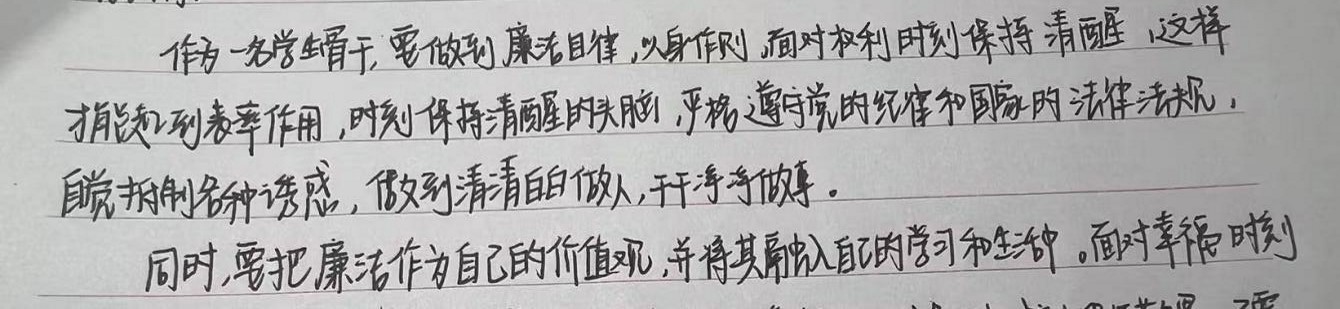 作为一名学生骨干,要做到廉洁自律,以身作则,面对权利时刻保持清醒,这样
才能起到表率作用,时刻保持清醒的头脑,严格遵守党的纪律和国家的法律法规,
自觉抵制各种诱惑,做到清清白白做人,干干净净做事。
同时,要把廉洁作为自己的价值观,并将其融入自己的学习和生活中。面对幸福时刻